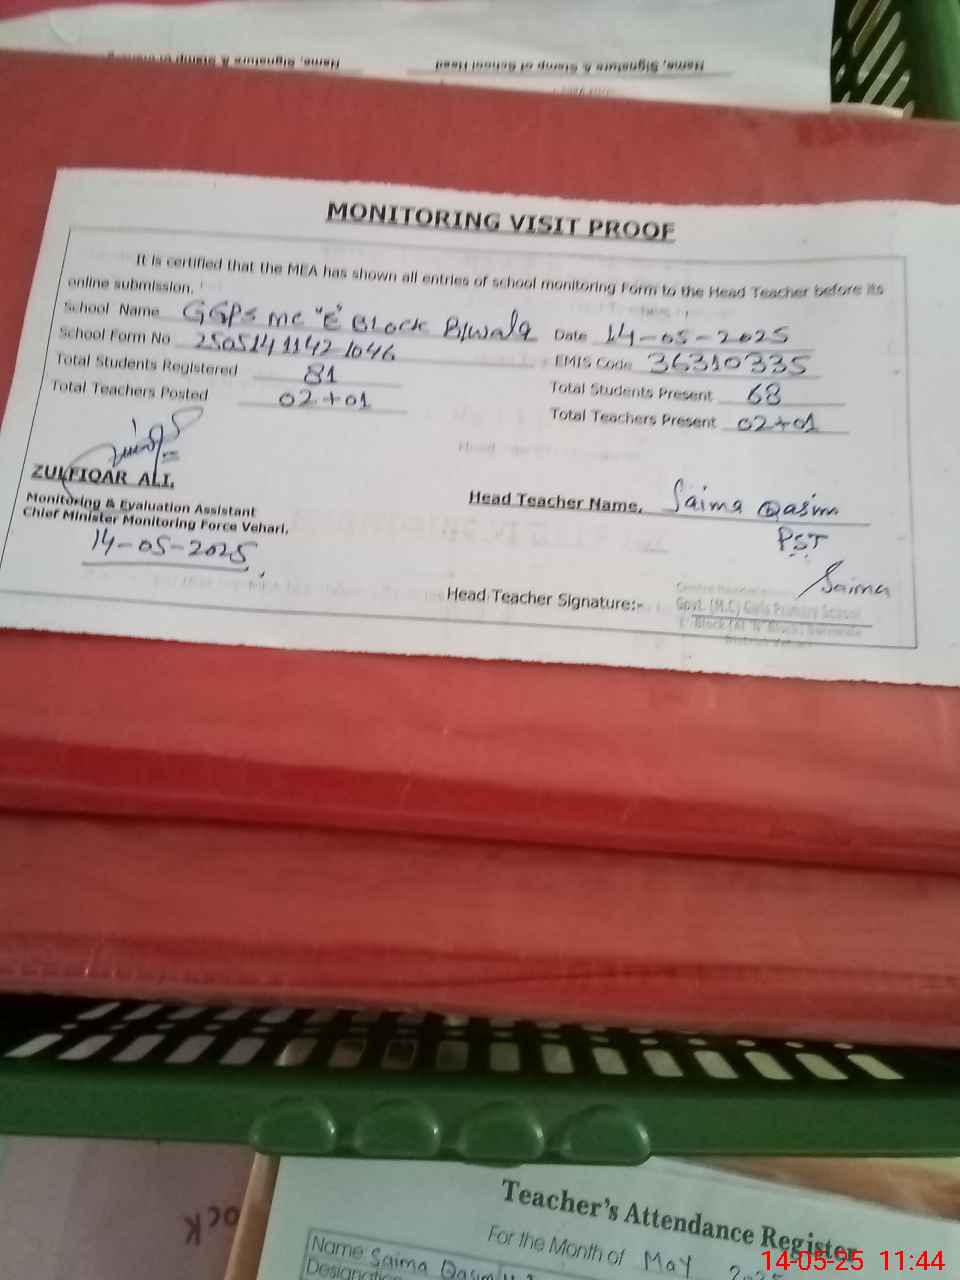 Name, Signature & Stamp of School Head
MONITORING VISIT PROOF
It is certified that the MEA has shown all entries of school monitoring Form to the Head Teacher before its
online submission.
School Name GGPS MC "E" Block B/wala Date 14-05-2025
School Form No 2505141142 1046 EMIS Code 36310335
Total Students Registered 81 Total Students Present 68
Total Teachers Posted 02+01 Total Teachers Present 02+01
ZULFIQAR ALI.
Monitoring & Evaluation Assistant
Chief Minister Monitoring Force Vehari.
14-05-2025
Head Teacher Name. Saima Qasim
PST
Saima
Head Teacher Signature:-
Govt. (M.C) Girls Primary School
Teacher's Attendance Register
For the Month of May 2025
Name Saima Qasim
14-05-25 11:44